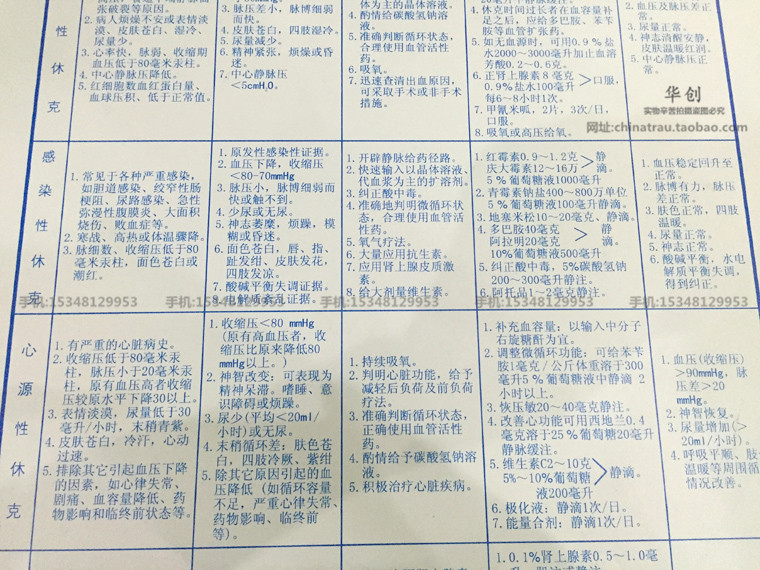 性休克
张破裂等原因。
2. 病人烦燥不安或表情淡
漠、皮肤苍白、湿冷、
尿量少。
3. 心率快，脉弱、收缩期
血压低于80毫米汞柱。
4. 中心静脉压降低。
5. 红细胞数血红蛋白量、
血球压积、低于正常值。
3. 脉压差小，脉博细弱
而快。
4. 皮肤苍白，四肢湿冷。
5. 尿量减少。
6. 精神紧张，烦燥或昏
迷。
7. 中心静脉压
<5cmH₂O。
体为主的晶体溶液。
4. 酌情给碳酸氢钠溶
液。
5. 准确判断循环状态，
合理使用血管活性
药。
6. 吸氧。
7. 迅速查清出血原因，
可采取手术或非手术
措施。
4. 休克时间过长者在血容量补
足之后，应给多巴胺、苯苄
胺等血管扩张药。
5. 如无血源时，可用0.9%盐
水2000～3000毫升加止血溶
芳酸0.2～0.6克。
6. 正肾上腺素8毫克
0.9%盐水100毫升
>口服，
每6～8小时1次。
7. 甲氰米呱，2片，3次/日，
口服。
8. 吸氧或高压给氧。
2. 血压及脉压差正
常。
3. 尿量正常。
4. 神志清醒安静，
皮肤温暖红润。
5. 中心静脉压正
常。
华创
实物辛苦拍摄盗图必究
网址:chinatrau.taobao.com
感染性休克
1. 常见于各种严重感染，
如胆道感染、绞窄性肠
梗阻、尿路感染、急性
弥漫性腹膜炎、大面积
烧伤、败血症等。
2. 寒战、高热或体温骤降。
3. 脉细数、收缩压低于80
毫米汞柱，面色苍白或
潮红。
1. 原发性感染性证据。
2. 血压下降，收缩压
<80-70mmHg
3. 脉压小，脉博细弱而
快或触不到。
4. 少尿或无尿。
5. 神志萎糜，烦躁，模
糊或昏迷。
6. 面色苍白，唇、指、
趾发绀、皮肤发花，
四肢发凉。
7. 酸碱平衡失调证据。
8. 电解质紊乱证据。
1. 开辟静脉给药径路。
2. 快速输入以晶体溶液、
代血浆为主的扩溶剂。
3. 纠正酸中毒。
4. 准确地判明微循环状
态，合理使用血管活
性药。
5. 氧气疗法。
6. 大量应用抗生素。
7. 应用肾上腺皮质激
素。
8. 给大剂量维生素。
1. 红霉素0.9～1.2克
庆大霉素12～16万
>静滴。
5%葡萄糖液1000毫升
2. 青霉素钠盐400～800万单位
5%葡萄糖液100毫升静滴。
3. 地塞米松10～20毫克，静滴。
4. 多巴胺40毫克
阿拉明20毫克
>静滴。
10%葡萄糖液500毫升
5. 纠正酸中毒，5%碳酸氢钠
200～300毫升静注。
6. 阿托品1～2毫克静注。
1. 血压稳定回升至
正常。
2. 脉博有力，脉压
差正常。
3. 肤色正常，四肢
温暖。
4. 尿量正常。
5. 神志正常。
6. 酸碱平衡，水电
解质平衡失调，
得到纠正。
手机:15348129953
手机:15348129953
手机:15348129953
手机:15348129953
心源性休克
1. 有严重的心脏病史。
2. 收缩压低于80毫米汞
柱，脉压小于20毫米汞
柱，原有血压高者收缩
压较原水平下降30以上。
3. 表情淡漠，尿量低于30
毫升/小时，末梢青紫。
4. 皮肤苍白，冷汗，心动
过速。
5. 排除其它引起血压下降
的因素，如心律失常、
剧痛、血容量降低、药
物影响和临终前状态等。
1. 收缩压<80 mmHg
(原有高血压者，收
缩压比原来降低80
mmHg以上。)
2. 神智改变：可表现为
精神呆滞。嗜睡、意
识障碍或烦燥。
3. 尿少(平均<20ml/
小时)或无尿。
4. 末梢循环差：肤色苍
白，四肢冷厥、紫绀
5. 除其它原因引起的血
压降低(如循环容量
不足，严重心律失常、
药物影响、临终前
等)。
1. 持续吸氧。
2. 判明心脏功能，给予
减轻后负荷及前负荷
疗法。
3. 准确判断循环状态，
正确使用血管活性
药。
4. 酌情给予碳酸氢钠溶
液。
5. 积极治疗心脏疾病。
1. 补充血容量：以输入中分子
右旋糖酐为宜。
2. 调整微循环功能：可给苯苄
胺1毫克/公斤体重溶于300
毫升5%葡萄糖液中静滴 2
小时以上。
3. 恢压敏20～40毫克静注。
4. 改善心功能可用西地兰0.4
毫克溶于25%葡萄糖20毫升
静脉缓注。
5. 维生素C2～10克
5%～10%葡萄糖
液200毫升
>静滴。
6. 极化液：静滴1次/日。
7. 能量合剂：静滴1次/日。
1. 血压(收缩压)
>90mmHg，脉
压差>20
mmHg。
2. 神智恢复。
3. 尿量增加(>
20ml/小时)。
4. 呼吸平顺、肢
温暖等周围循
情况改善。
1. 0.1%肾上腺素0.5～1.0毫